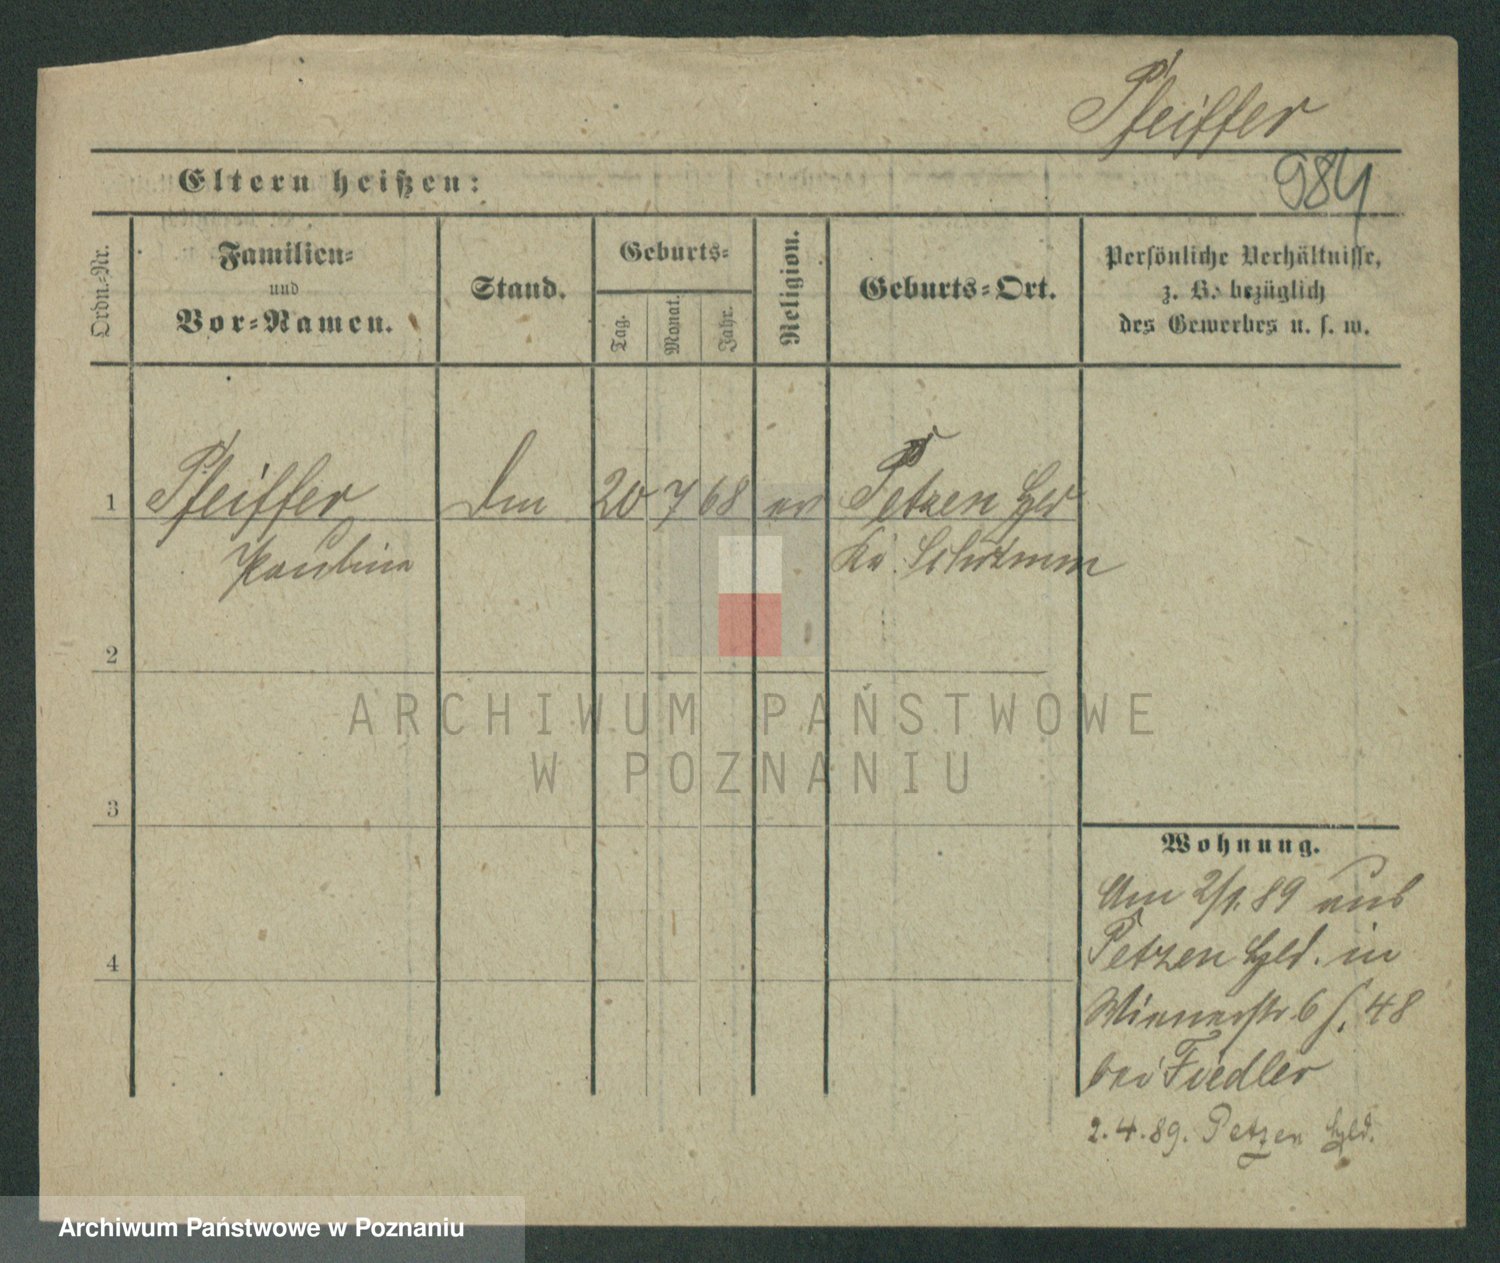 Pfeiffer
984
Eltern heißen:
Ordn.-Nr.
Familien-
und
Vor-Namen.
Stand.
Geburts-
Tag.
Monat.
Jahr.
Religion.
Geburts-Ort.
Persönliche Verhältnisse,
z. B. bezüglich
des Gewerbes u. s. w.
1
Pfeiffer
20
7
68
ev
Petzen Hld
Paulina
Kr. Schrimm
2
3
4
Wohnung.
Am 2/1.89 aus
Petzen Hld. in
Wienerstr. 6 48
bei Fiedler
2.4.89. Petzen Hld.
ARCHIWUM PAŃSTWOWE
W POZNANIU
Archiwum Państwowe w Poznaniu